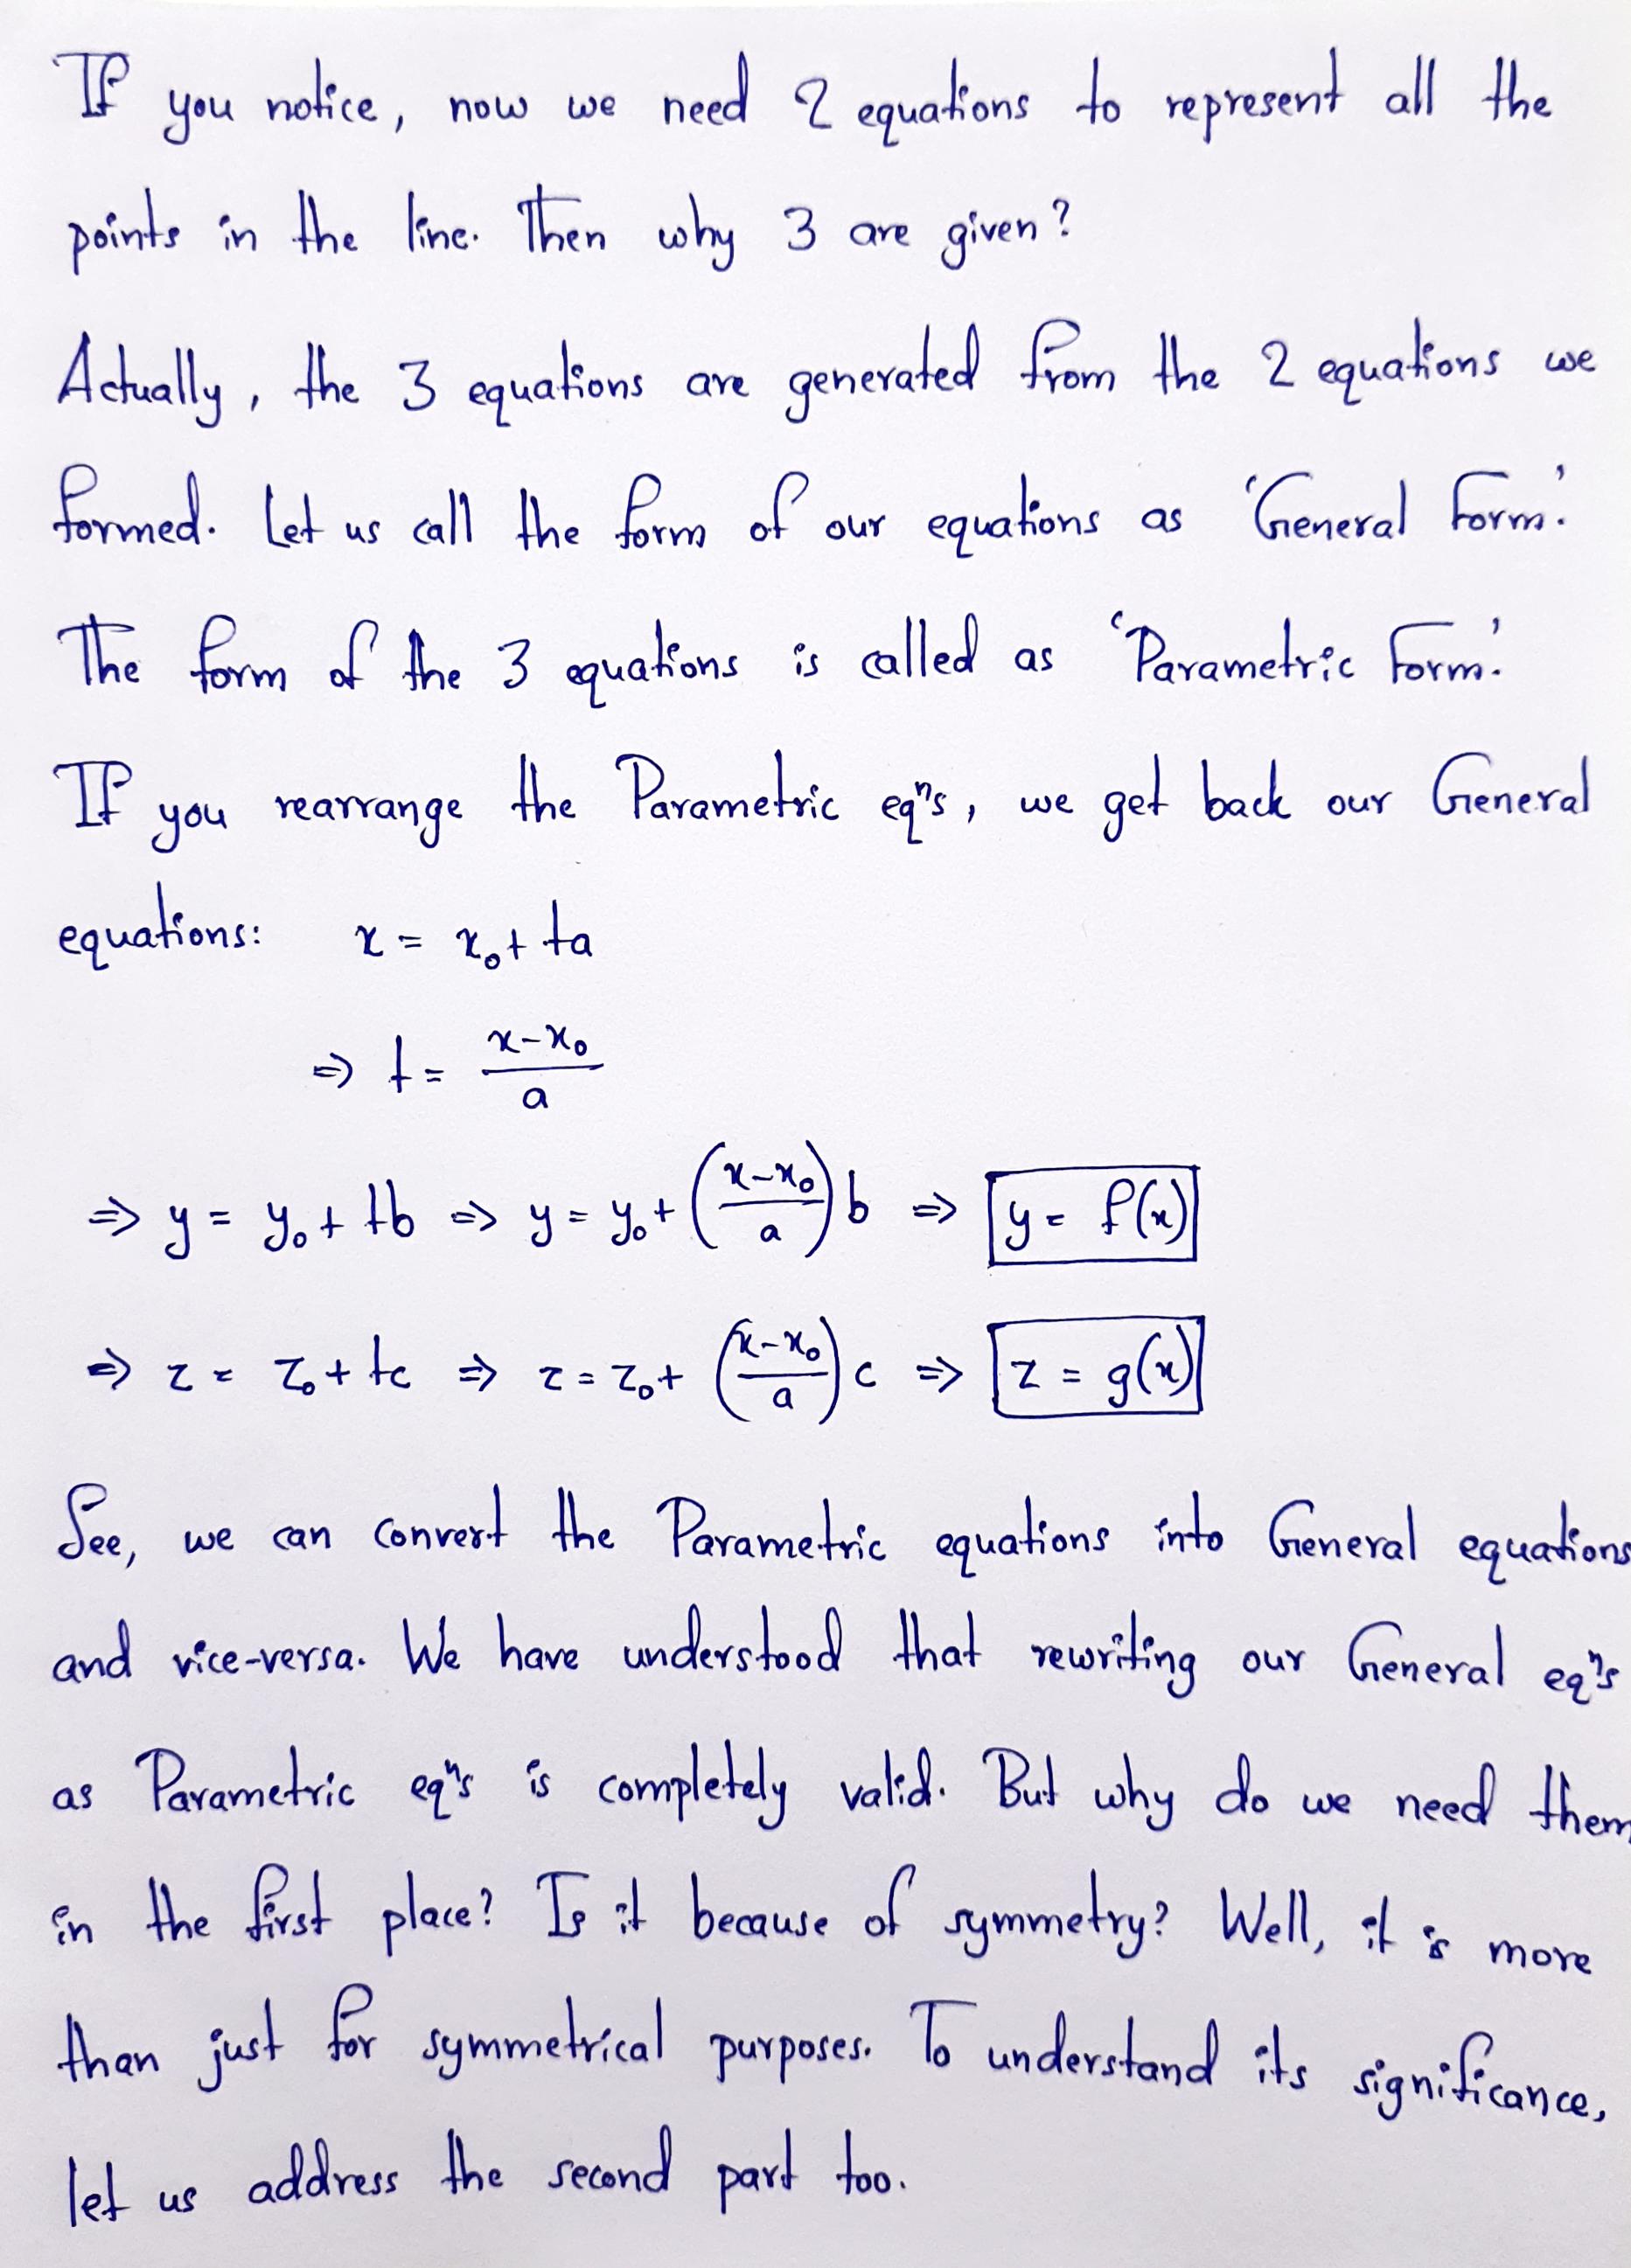 If you notice, now we need 2 equations to represent all the
points in the line. Then why 3 are given?
Actually, the 3 equations are generated from the 2 equations we
formed. Let us call the form of our equations as 'General Form.'
The form of the 3 equations is called as 'Parametric Form.'
If you rearrange the Parametric eqⁿs, we get back our General
equations: x = x₀ + ta
⇒ t = (x-x₀)/a
⇒ y = y₀ + tb ⇒ y = y₀ + ((x-x₀)/a) b ⇒ y = f(x)
⇒ z = z₀ + tc ⇒ z = z₀ + ((x-x₀)/a) c ⇒ z = g(x)
See, we can convert the Parametric equations into General equations
and vice-versa. We have understood that rewriting our General eqⁿs
as Parametric eqⁿs is completely valid. But why do we need them
in the first place? Is it because of symmetry? Well, it is more
than just for symmetrical purposes. To understand its significance,
let us address the second part too.